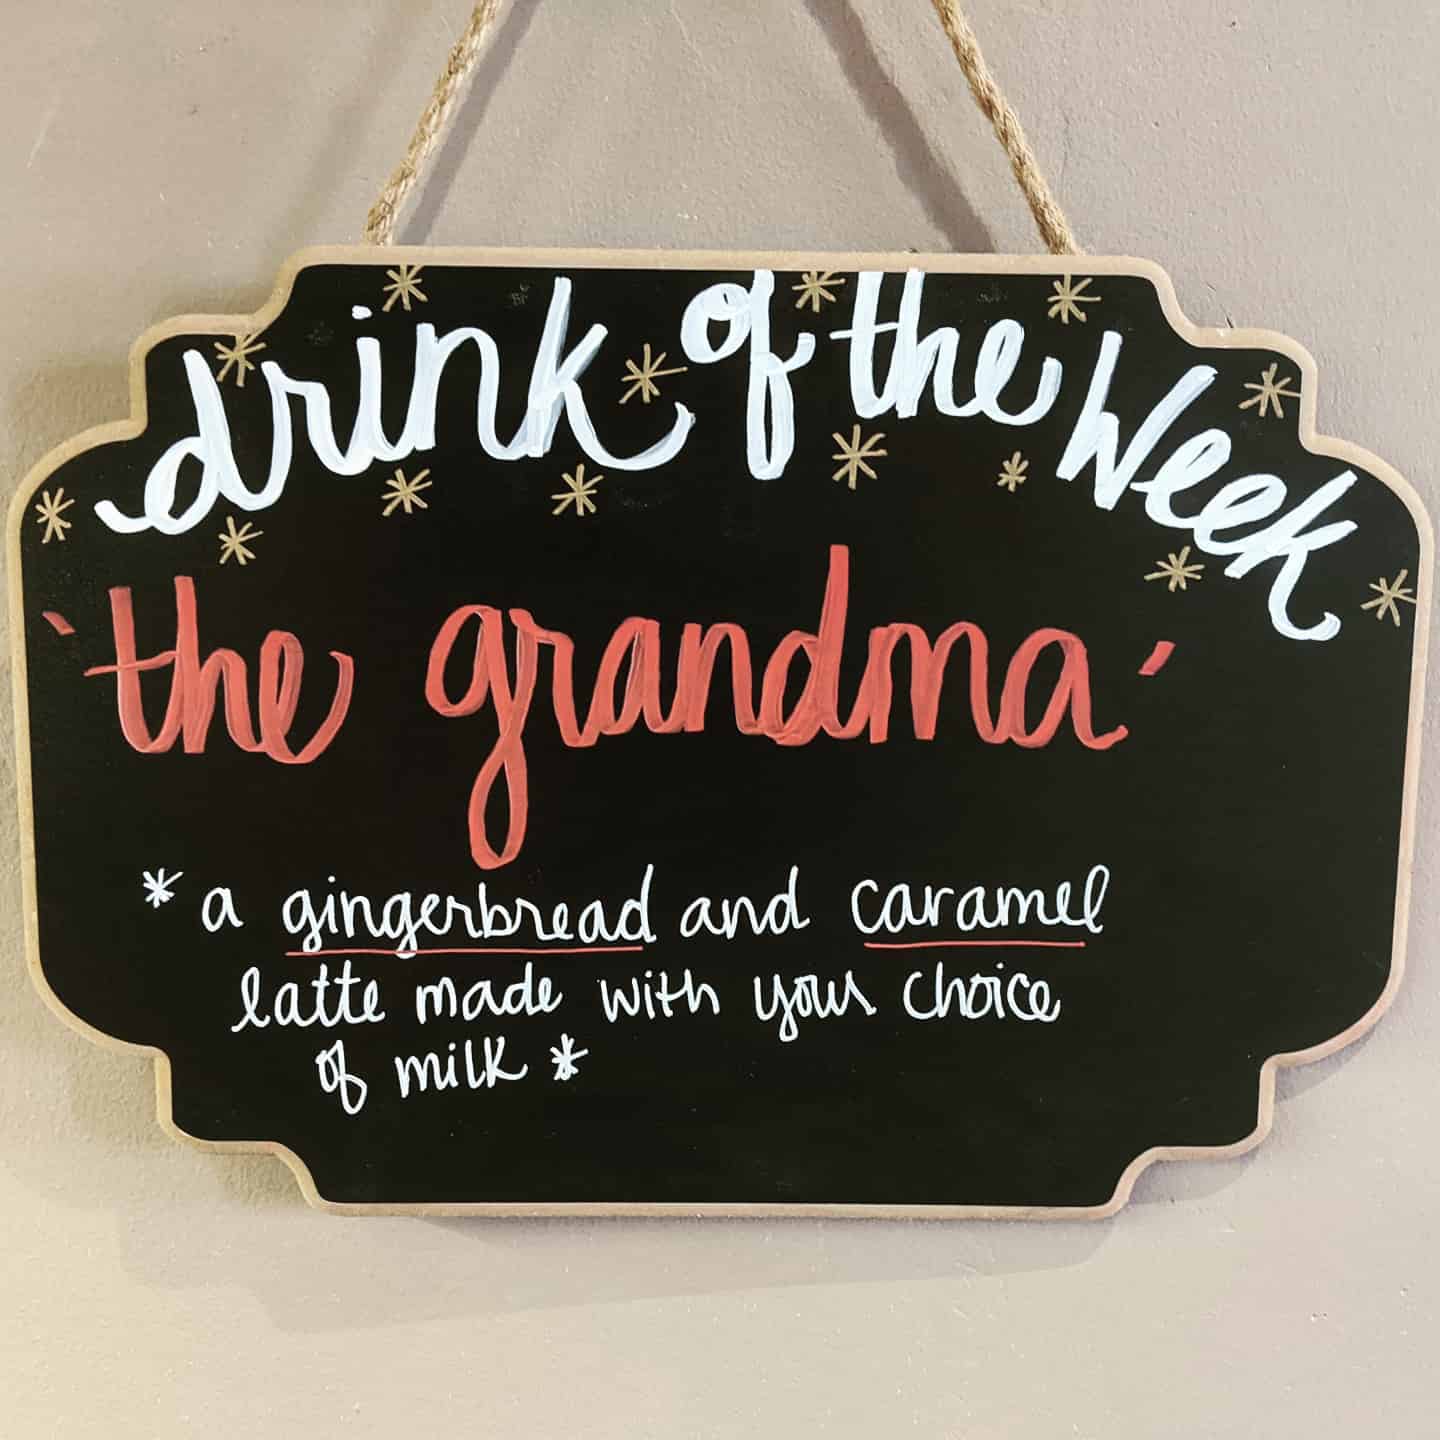 drink of the Week
'the grandma'
* a gingerbread and caramel
latte made with your choice
of milk *